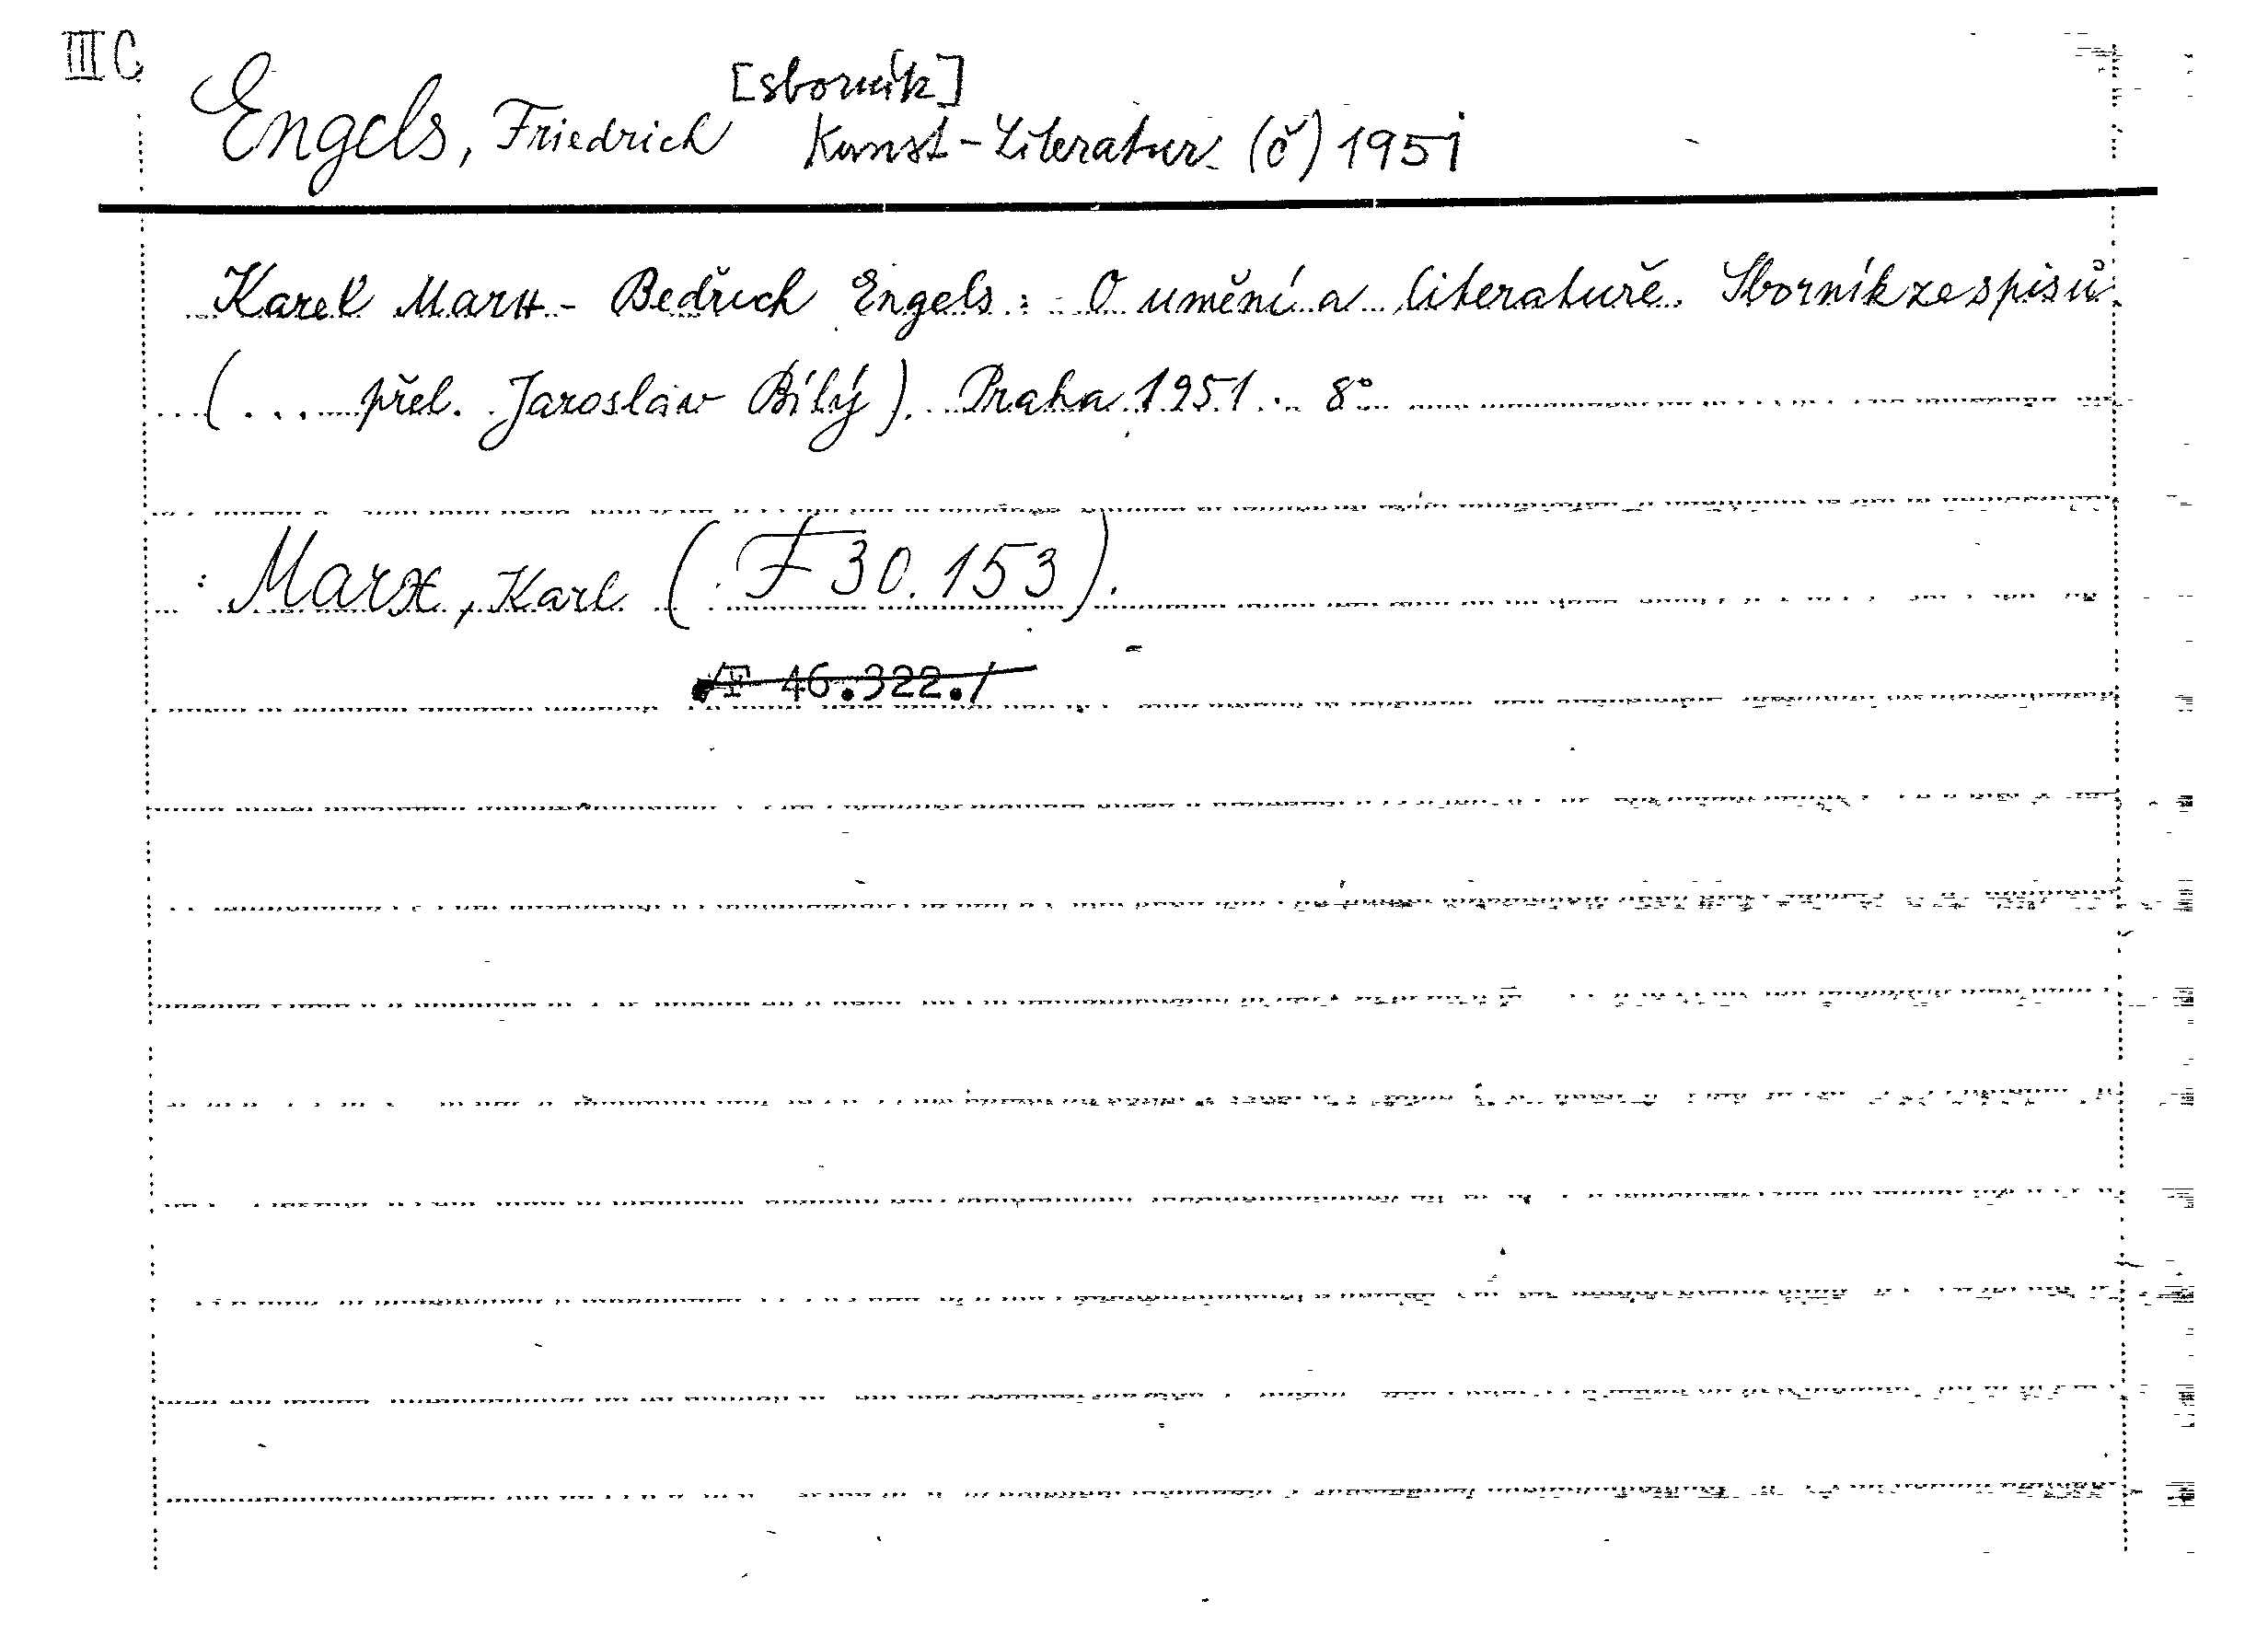 III C
[sborník]
Engels, Friedrich Kunst-Literatur (č) 1951
Karel Marx - Bedřich Engels: O umění a literatuře. Sborník ze spisů.
(... přel. Jaroslav Bílý). Praha 1951. 8°
: Marx, Karl (F 30.153).
/F 46.322./